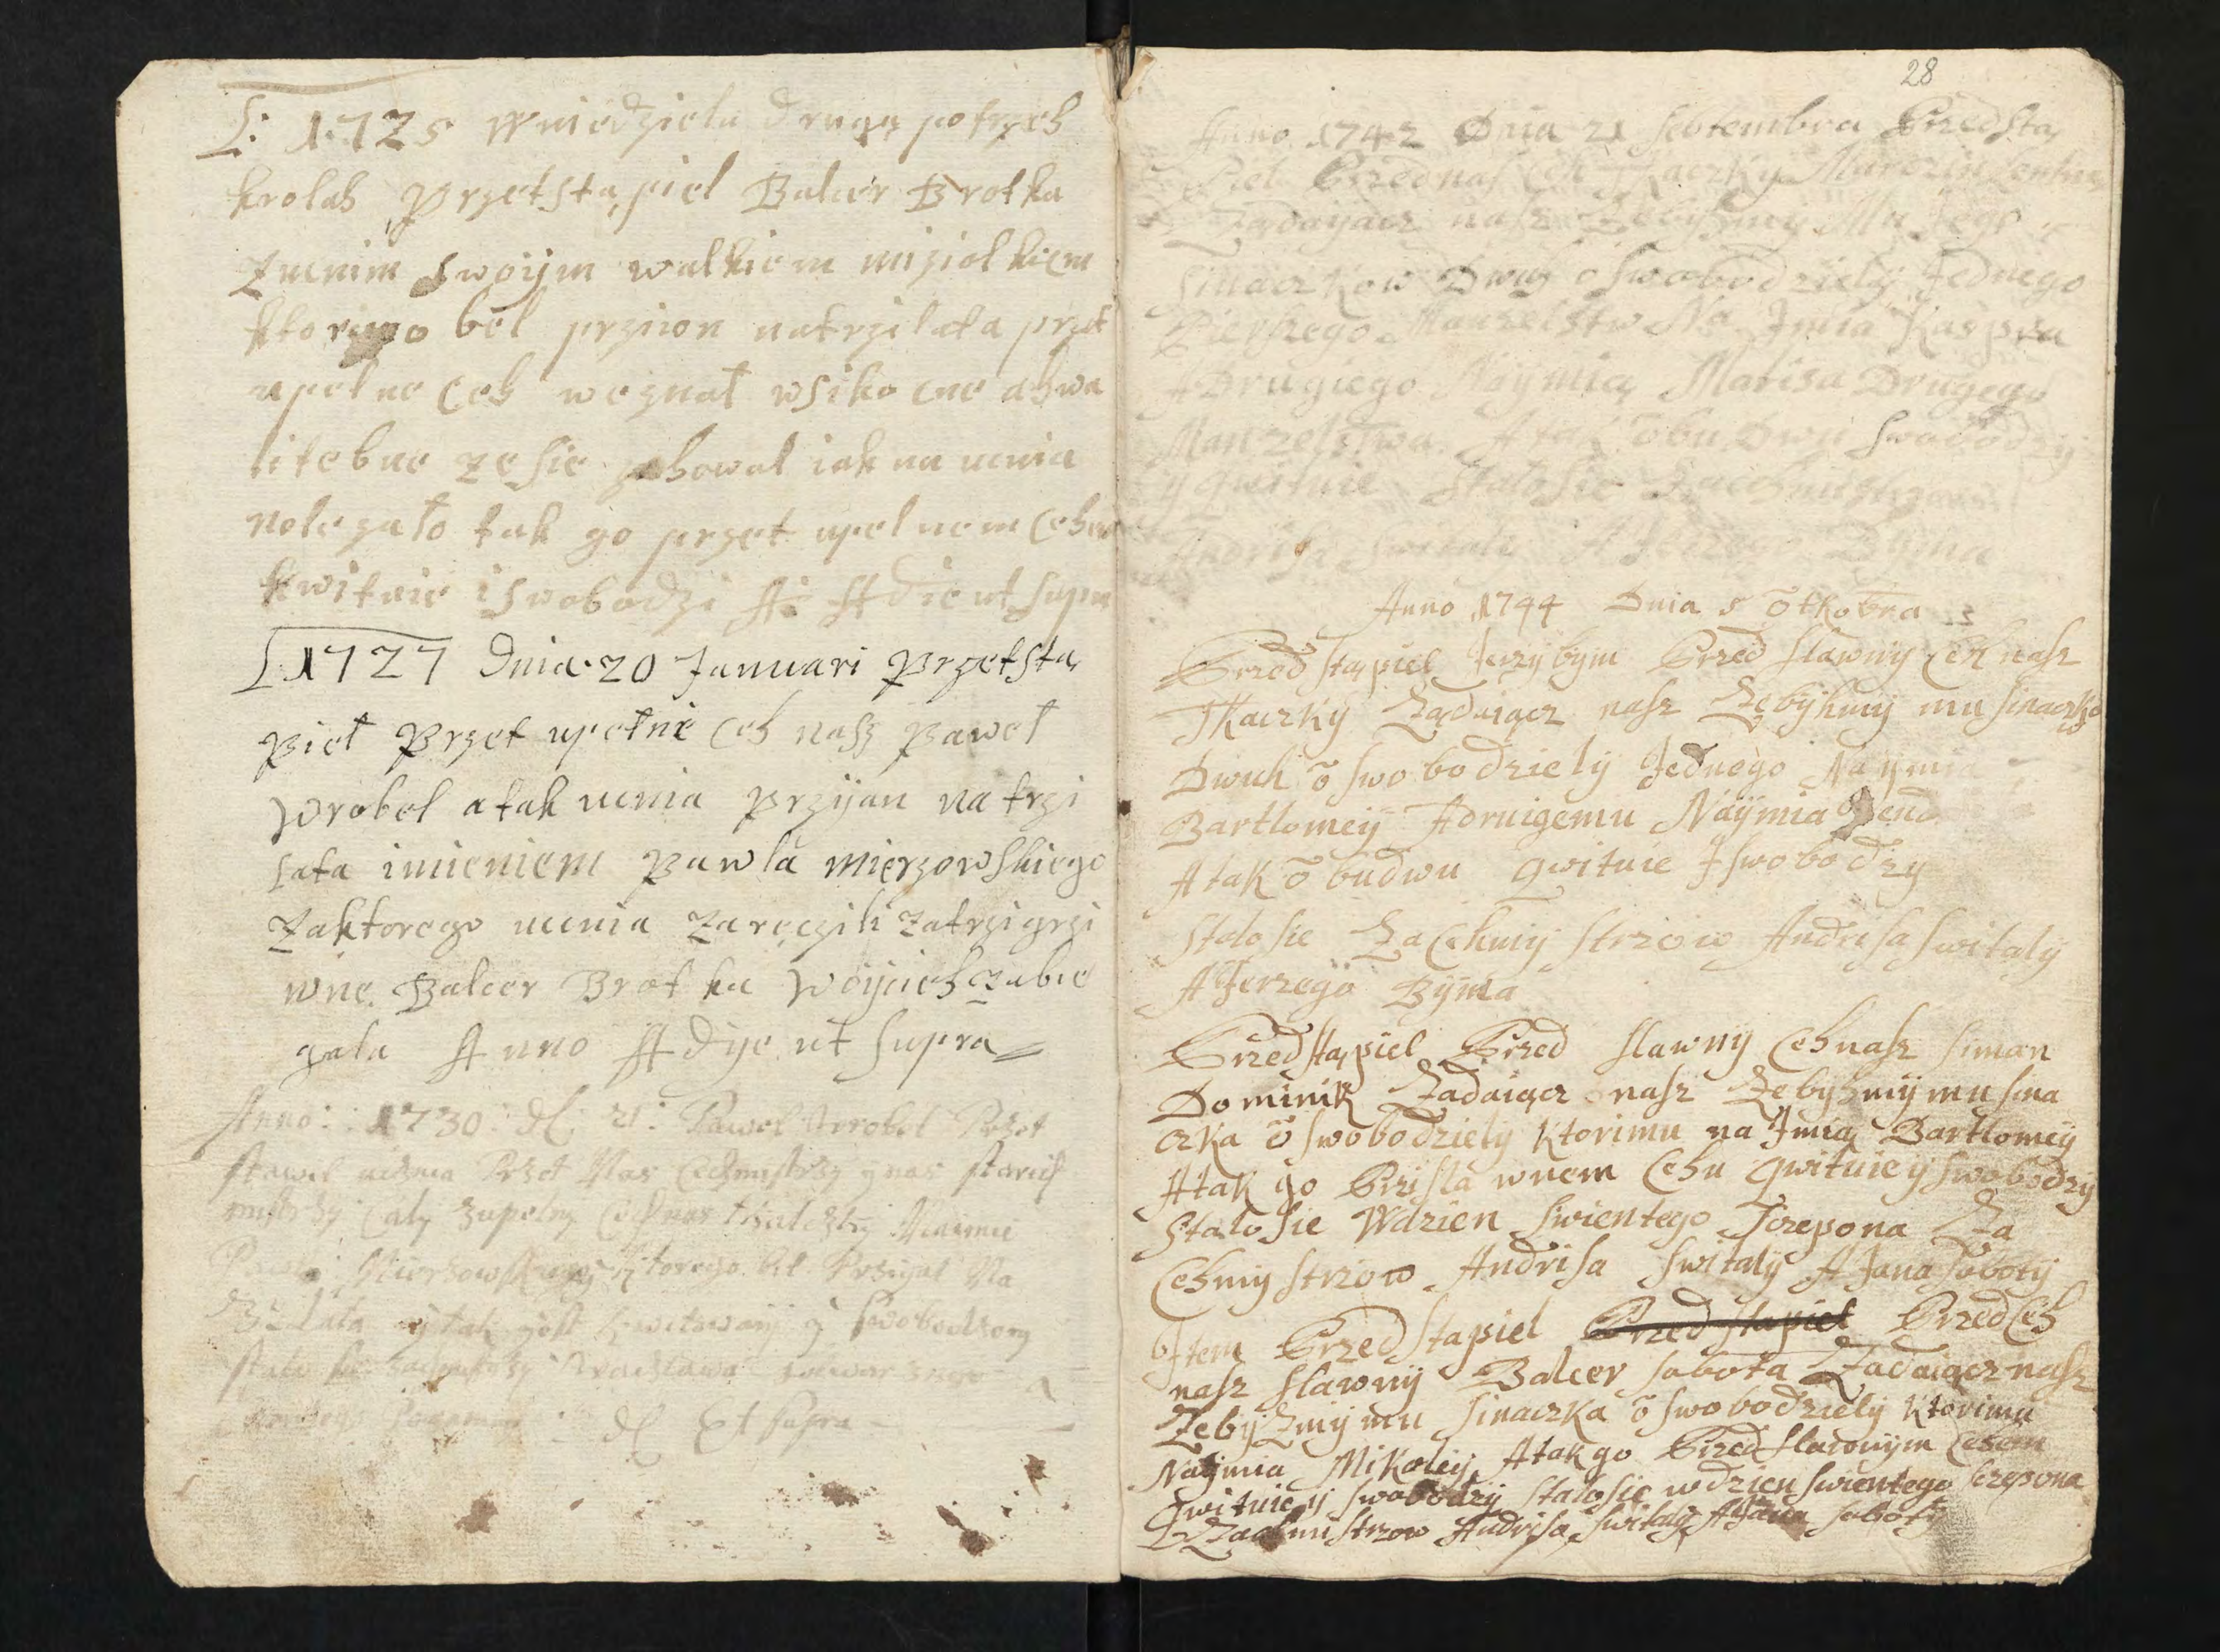 1725 W niedziela druga po trzeh
krolah przetsta,piel Balcer Brotka
z ucnim swoijm walkiem miziolkiem
ktorigo bel prziion na trzi lata przet
upelne Ceh weznał wsiko cne ahwa
litebne ze sie zahowal iak na ucnia
nolezało tak go przet upelnem Cehem
kwituie i swobodzi A Adie ut supra
1727 Dnia 20 Januari Przetsta,
pieł Przet upełne Ceh nasz Paweł
Wrobel a tak ucnia Przyjan na trzi
lata imieniem Pawla Mierzowskiego
Za ktorego ucnia Zaręczili Za trzi grzi
wne Balcer Brotka Woijcieh Zabie
gala Anno A Dije ut supra
Anno: 1730: d: 21: Pawel Wrobel Przet
stawil ucznia Przet Nas Cechmistrzy y nas starich
mistrzy Caly zupelny Cech nas tkaldzky
Pawla Mierzowskiego Ktorego bel Przyjal Na
3 Lata y tak gost kwitowany y swobodzony
stalo sie Wacława
d Et Supra
28
Anno 1742 Dnia 21 Septembra Przedsta,
Piel Przed nasz Ceh Tkaczky Marczin
Zadayacz nasz Zebyhmy Mu Jego
Sinaczkow Dwuh oswobodziely Jednego
Pierszego Manzelstw Na Jmia Kaspra
A Drugiego Naymia, Matisa Drugego
Manzelstwa A tak obu Dwu swobodzy
y gwituie Stalo sie Za Cehmistrzow
Andrisa Switaly A Jerzego Byma
Anno 1744 Dnia 5 õtkobra
Przedsta,piel Jerzy bym Przed slawny Ceh nasz
Tkaczky Zadaiącz nasz Zebyhmy mu sinaczko
w
Dwuh õswobodziely Jednego Naymia
Bartlomey A druigemu Naymia
A tak õbudwu gwituie J swobodzy
Stalo sie Za Cehmy strzow Andrisa switaly
A Jerzego Byma
Przedstąpiel Przed slawny Ceh nasz siman
Dominik Zadaiącz nasz Zebyhmy mu sina
czka õswobodziely Ktorimu na Jmią Bartlomey
A tak go Przi sla wnem Cehu gwituie y swobodzy
Stalo sie W dzien swientego Sczepona Za
Cehmy strzow Andrisa switaly A Jana soboty
Jtem Przedstapiel Przedstapiel Przed Ceh
nasz slawny Balcer sobota Zadaiącz nasz
Zebyhmy mu sinaczka õswobodziely Ktorimu
Naymia Mikoley A tak go Przed slawnym Cehem
gwituie y swobodzy stalo sie w dzien swientego sczepona
Za Cehmistrzow Andrisa switaly A Jana soboty